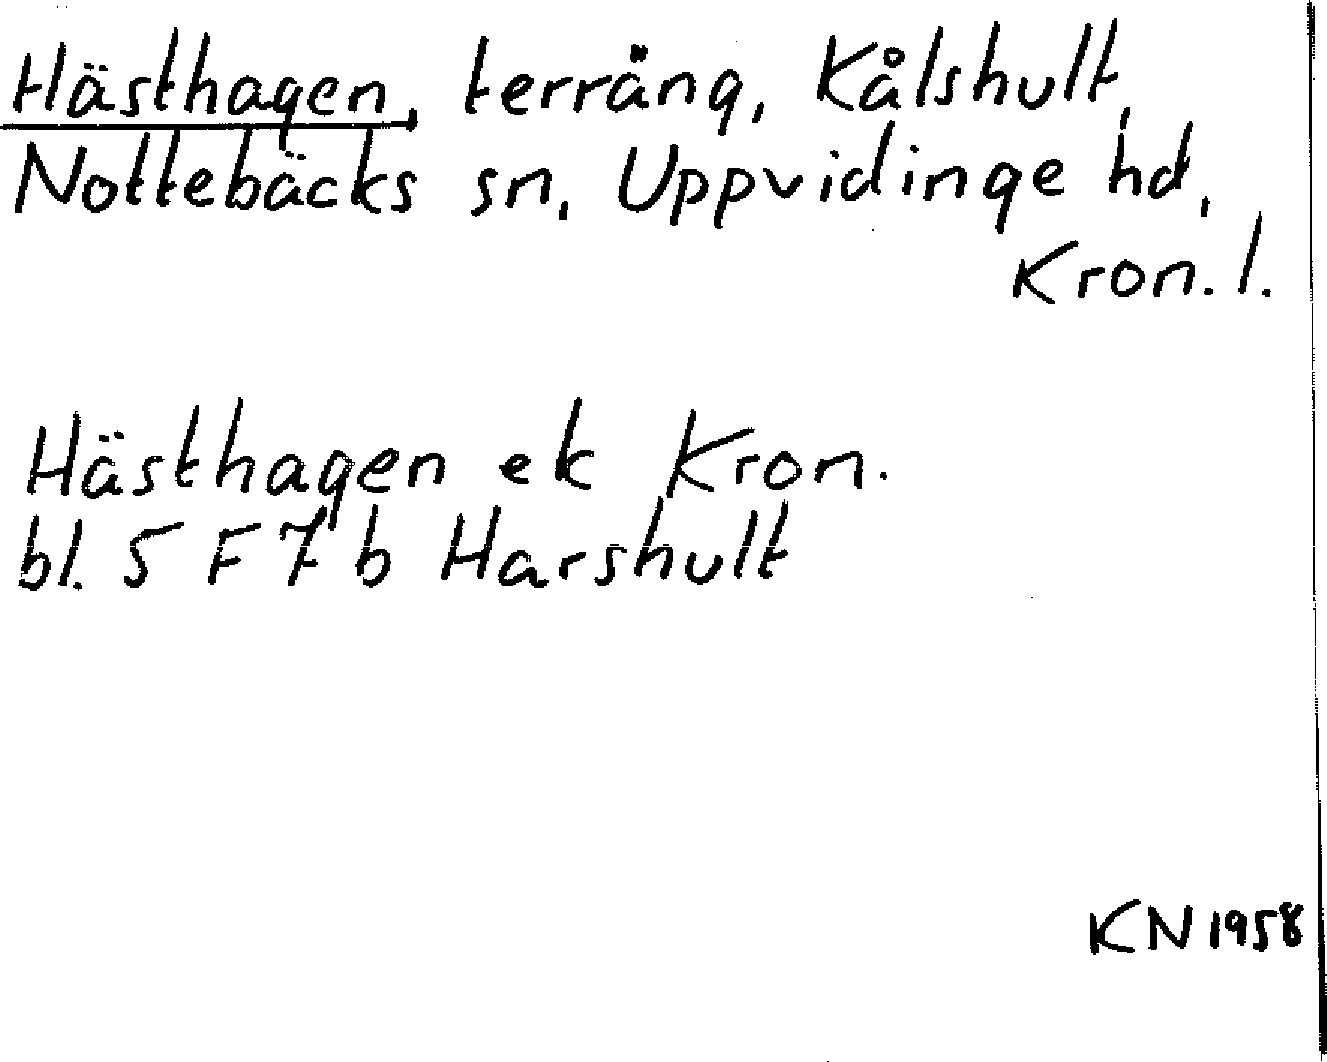 Hästhagen, terräng, Kålshult,
Nottebäcks sn, Uppvidinge hd,
Kron. l.
Hästhagen ek Kron.
bl. 5 F 7 b Harshult
KN 1958